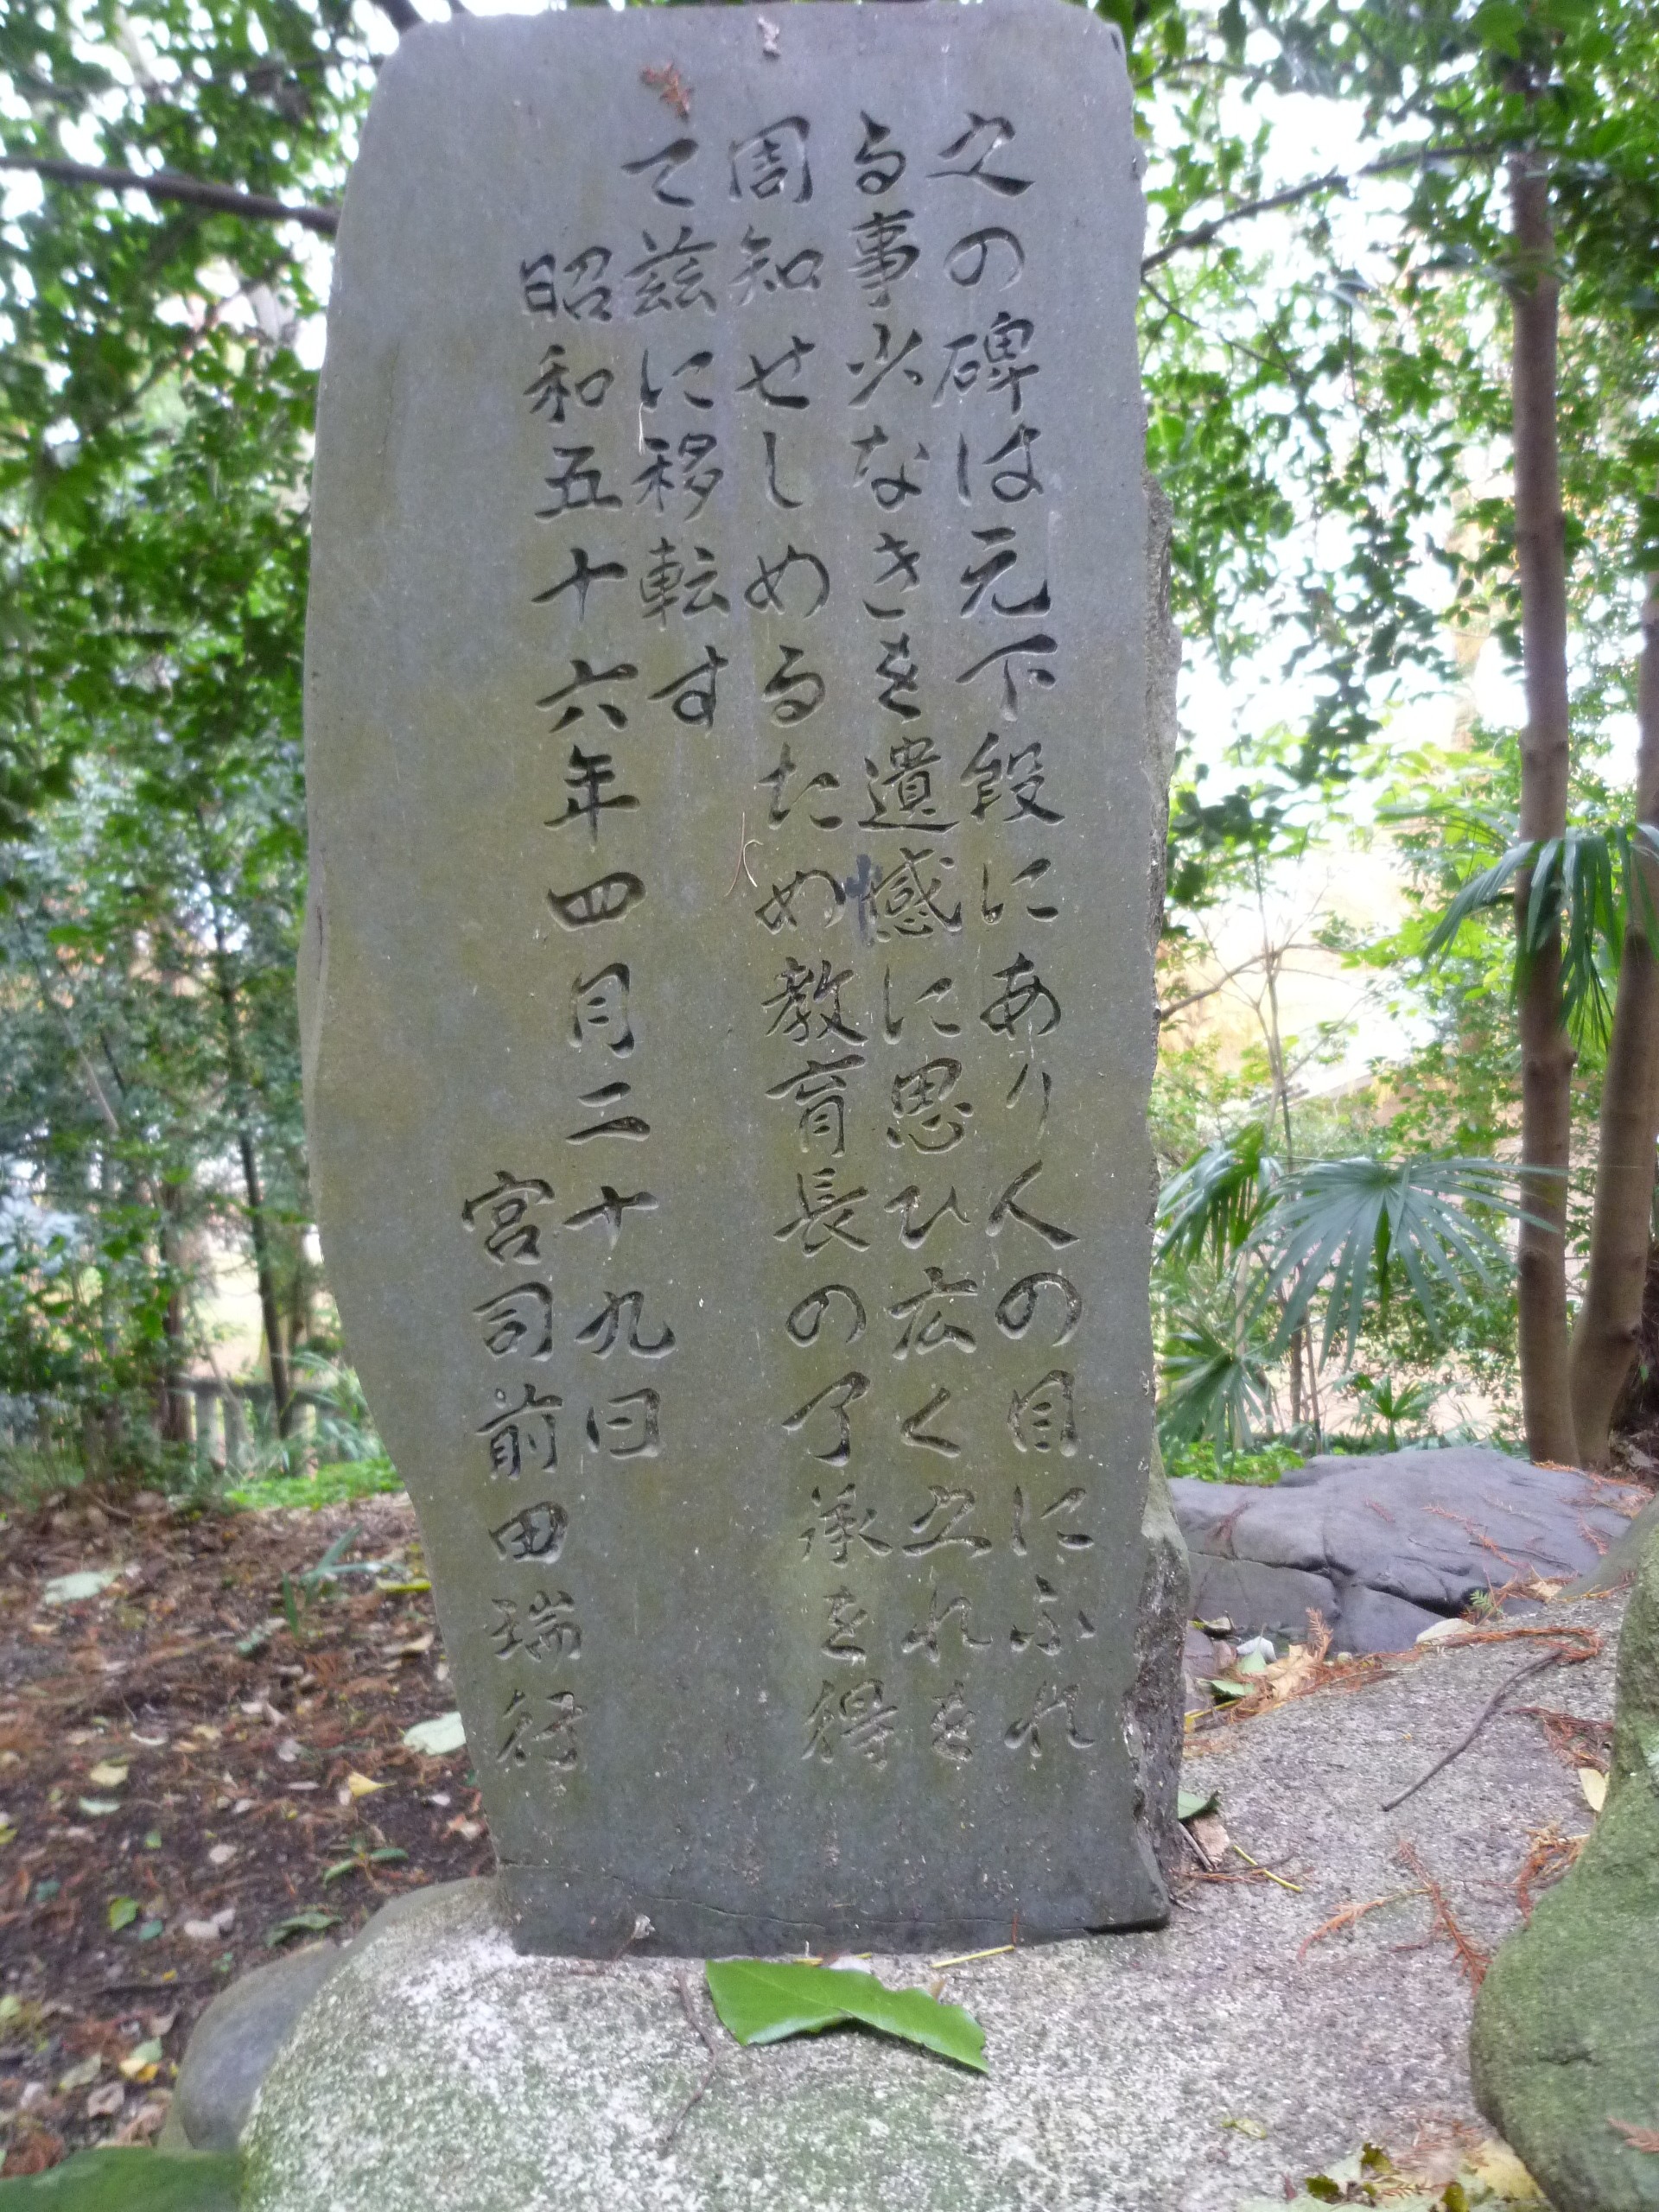 之の碑は元下段にあり人の目にふれ
る事少なきを遺憾に思ひ広く之れを
周知せしめるため教育長の了承を得
て茲に移転す
昭和五十六年四月二十九日
宮司前田瑞行